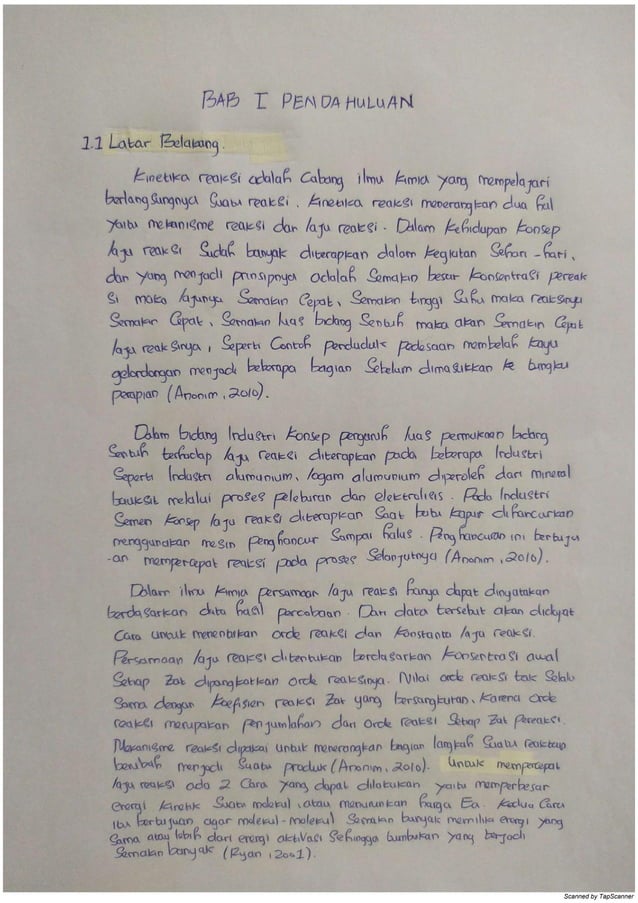 BAB I PENDAHULUAN
1.1 Latar Belakang.
Kinetika reaksi adalah Cabang ilmu kimia yang mempelajari
berlangsungnya Suatu reaksi. Kinetika reaksi menerangkan dua hal
yaitu mekanisme reaksi dan laju reaksi. Dalam Kehidupan Konsep
laju reaksi Sudah banyak diterapkan dalam kegiatan Sehari-hari,
dan yang menjadi prinsipnya adalah Semakin besar Konsentrasi pereak
si maka lajunya Semakin Cepat, Semakin tinggi Suhu maka reaksinya
Semakin Cepat, Semakin luas bidang Sentuh maka akan Semakin Cepat
laju reaksinya, Seperti Contoh penduduk pedesaan membelah kayu
gelondongan menjadi beberapa bagian Sebelum dimasukkan ke tungku
perapian (Anonim, 2010).
Dalam bidang Industri Konsep pengaruh luas permukaan bidang
Sentuh terhadap laju reaksi diterapkan pada beberapa Industri
Seperti Industri alumunium, logam alumunium diperoleh dari mineral
bauksit melalui proses peleburan dan elektrolisis. Pada Industri
Semen Konsep laju reaksi diterapkan Saat batu kapur dihancurkan
menggunakan mesin penghancur Sampai halus. Penghancuran ini bertuju
-an mempercepat reaksi pada proses Selanjutnya (Anonim, 2010).
Dalam ilmu kimia persamaan laju reaksi hanya dapat dinyatakan
berdasarkan data hasil percobaan. Dari data tersebut akan didapat
Cara untuk menentukan orde reaksi dan Konstanta laju reaksi.
Persamaan laju reaksi ditentukan berdasarkan Konsentrasi awal
Setiap Zat dipangkatkan orde reaksinya. Nilai orde reaksi tak Selalu
Sama dengan Koefisien reaksi Zat yang bersangkutan, Karena orde
reaksi merupakan penjumlahan dari orde reaksi Setiap Zat Pereaksi.
Mekanisme reaksi dipakai untuk menerangkan bagian langkah Suatu reaktan
berubah menjadi Suatu produk (Anonim, 2010). Untuk mempercepat
laju reaksi ada 2 Cara yang dapat dilakukan yaitu memperbesar
energi kinetik Suatu molekul, atau menurunkan harga Ea. Kedua Cara
itu bertujuan agar molekul-molekul Semakin banyak memiliki energi yang
Sama atau lebih dari energi aktivasi Sehingga tumbukan yang terjadi
Semakin banyak (Ryan, 2001).
Scanned by TapScanner